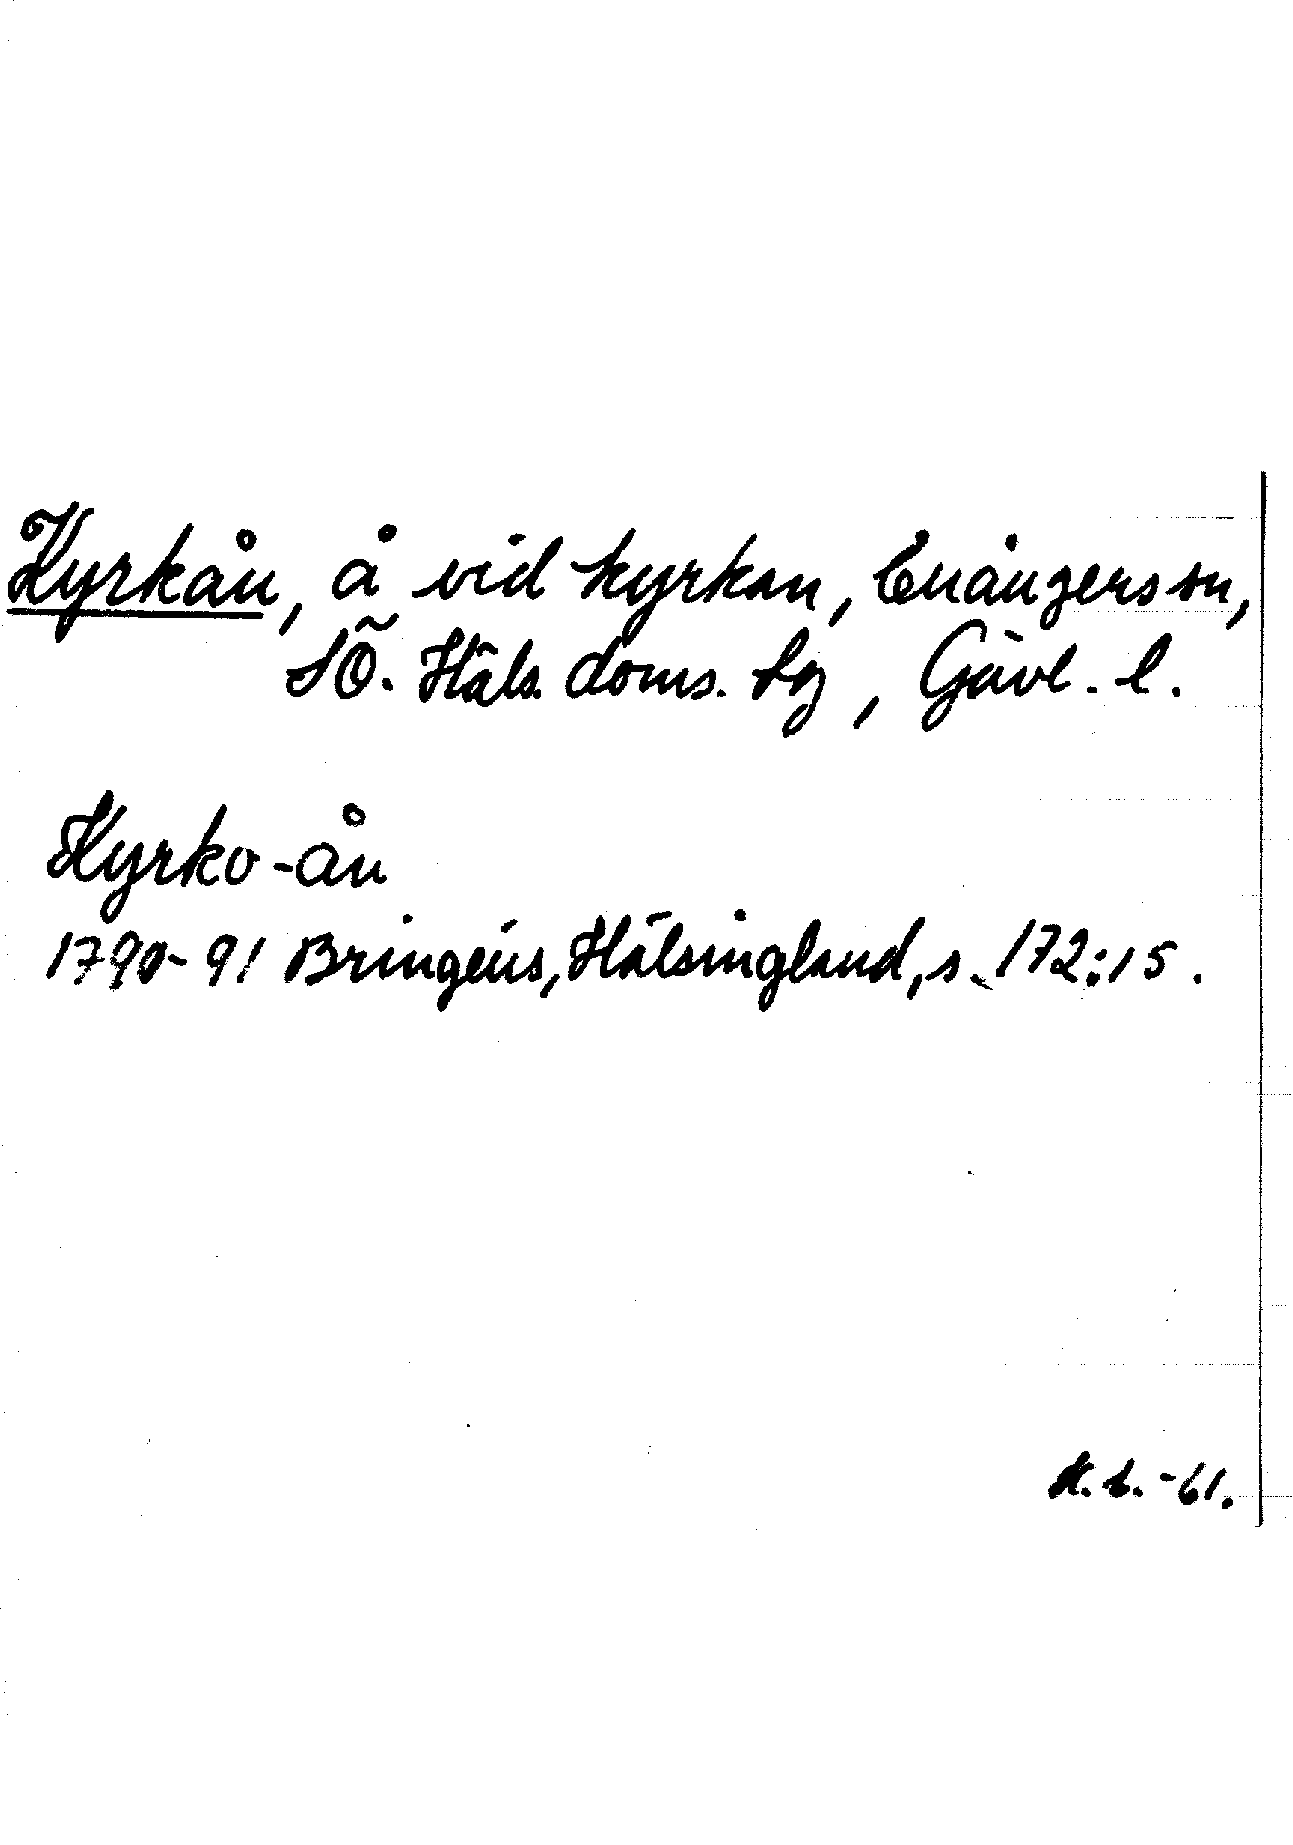 Kyrkån, å vid kyrkan, Enångers sn,
SÖ. Häls. doms. sg, Gävl. l.
Kyrko-ån
1790-91 Bringéus, Hälsingland, s. 172:15.
-61.